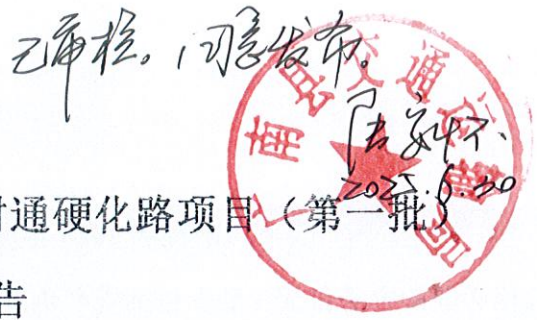 已审核。同意发布。
2025.6.30
广南县交通运输局
村通硬化路项目（第一批）
告